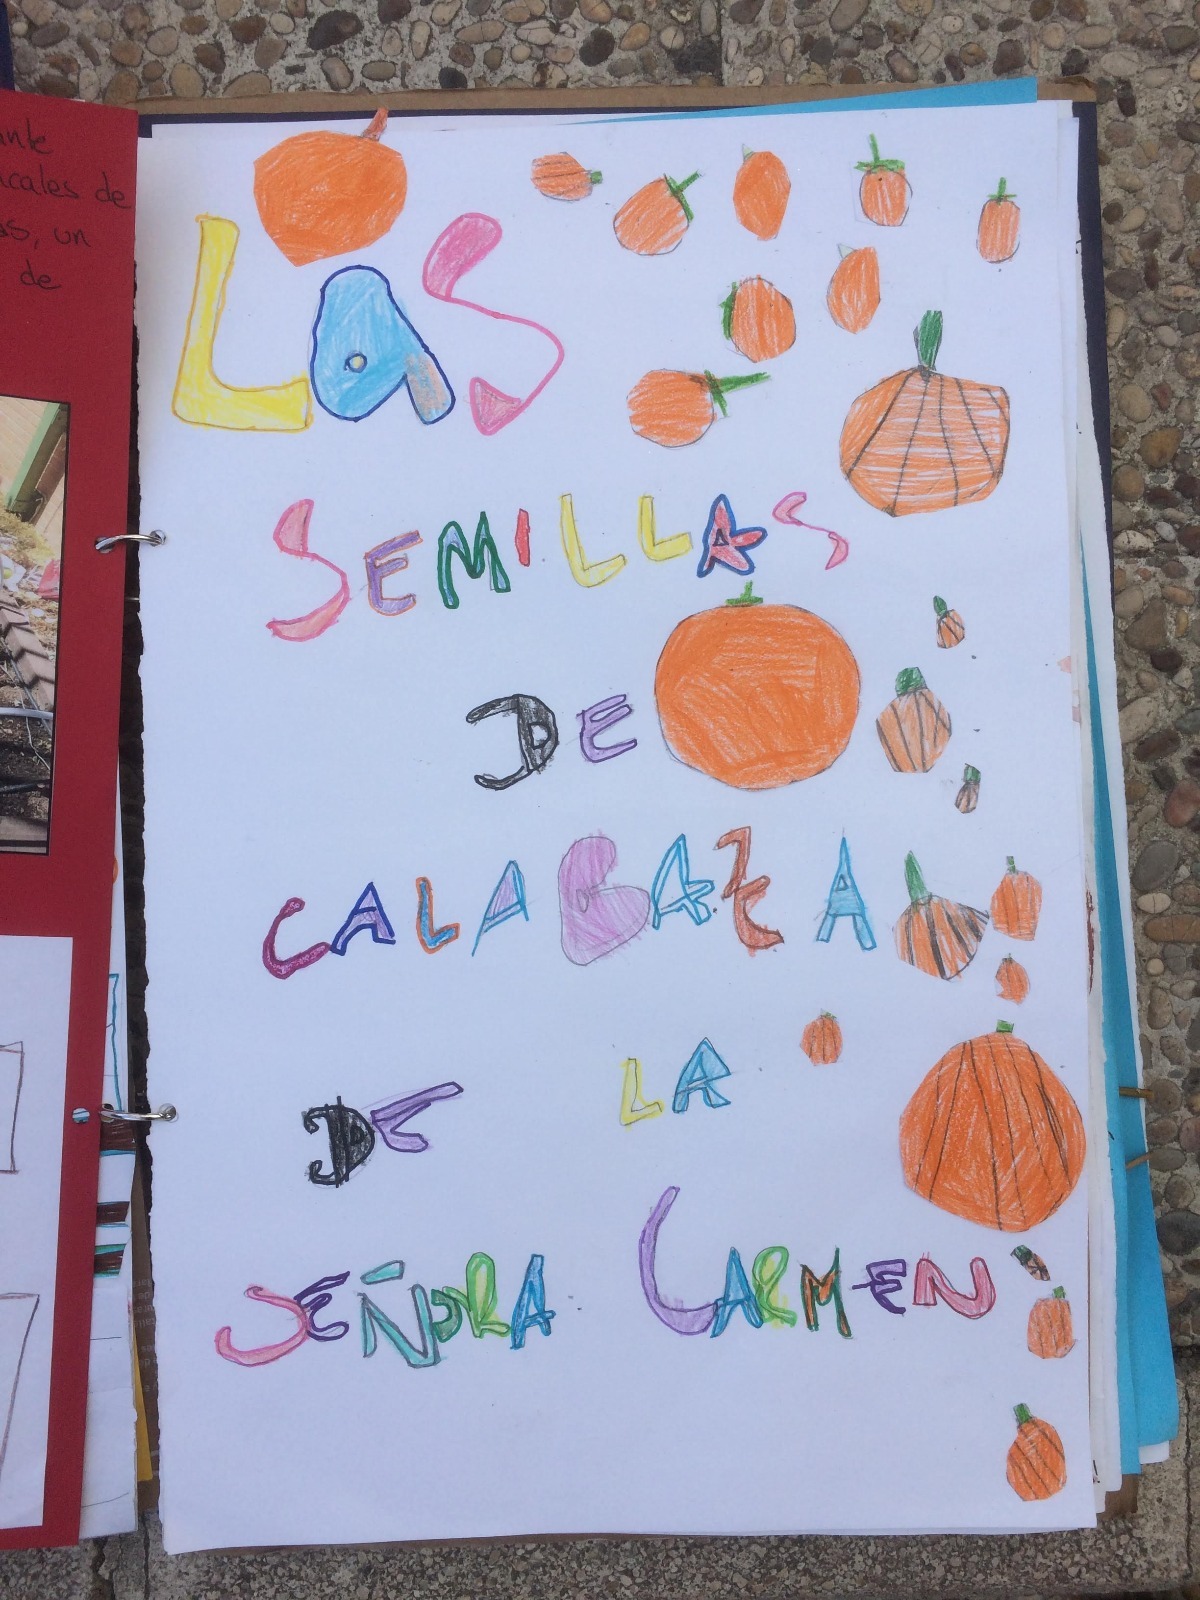 de
as, un
de
LAS
SEMILLAS
DE
CALABAZA
DE LA
SEÑORA CARMEN